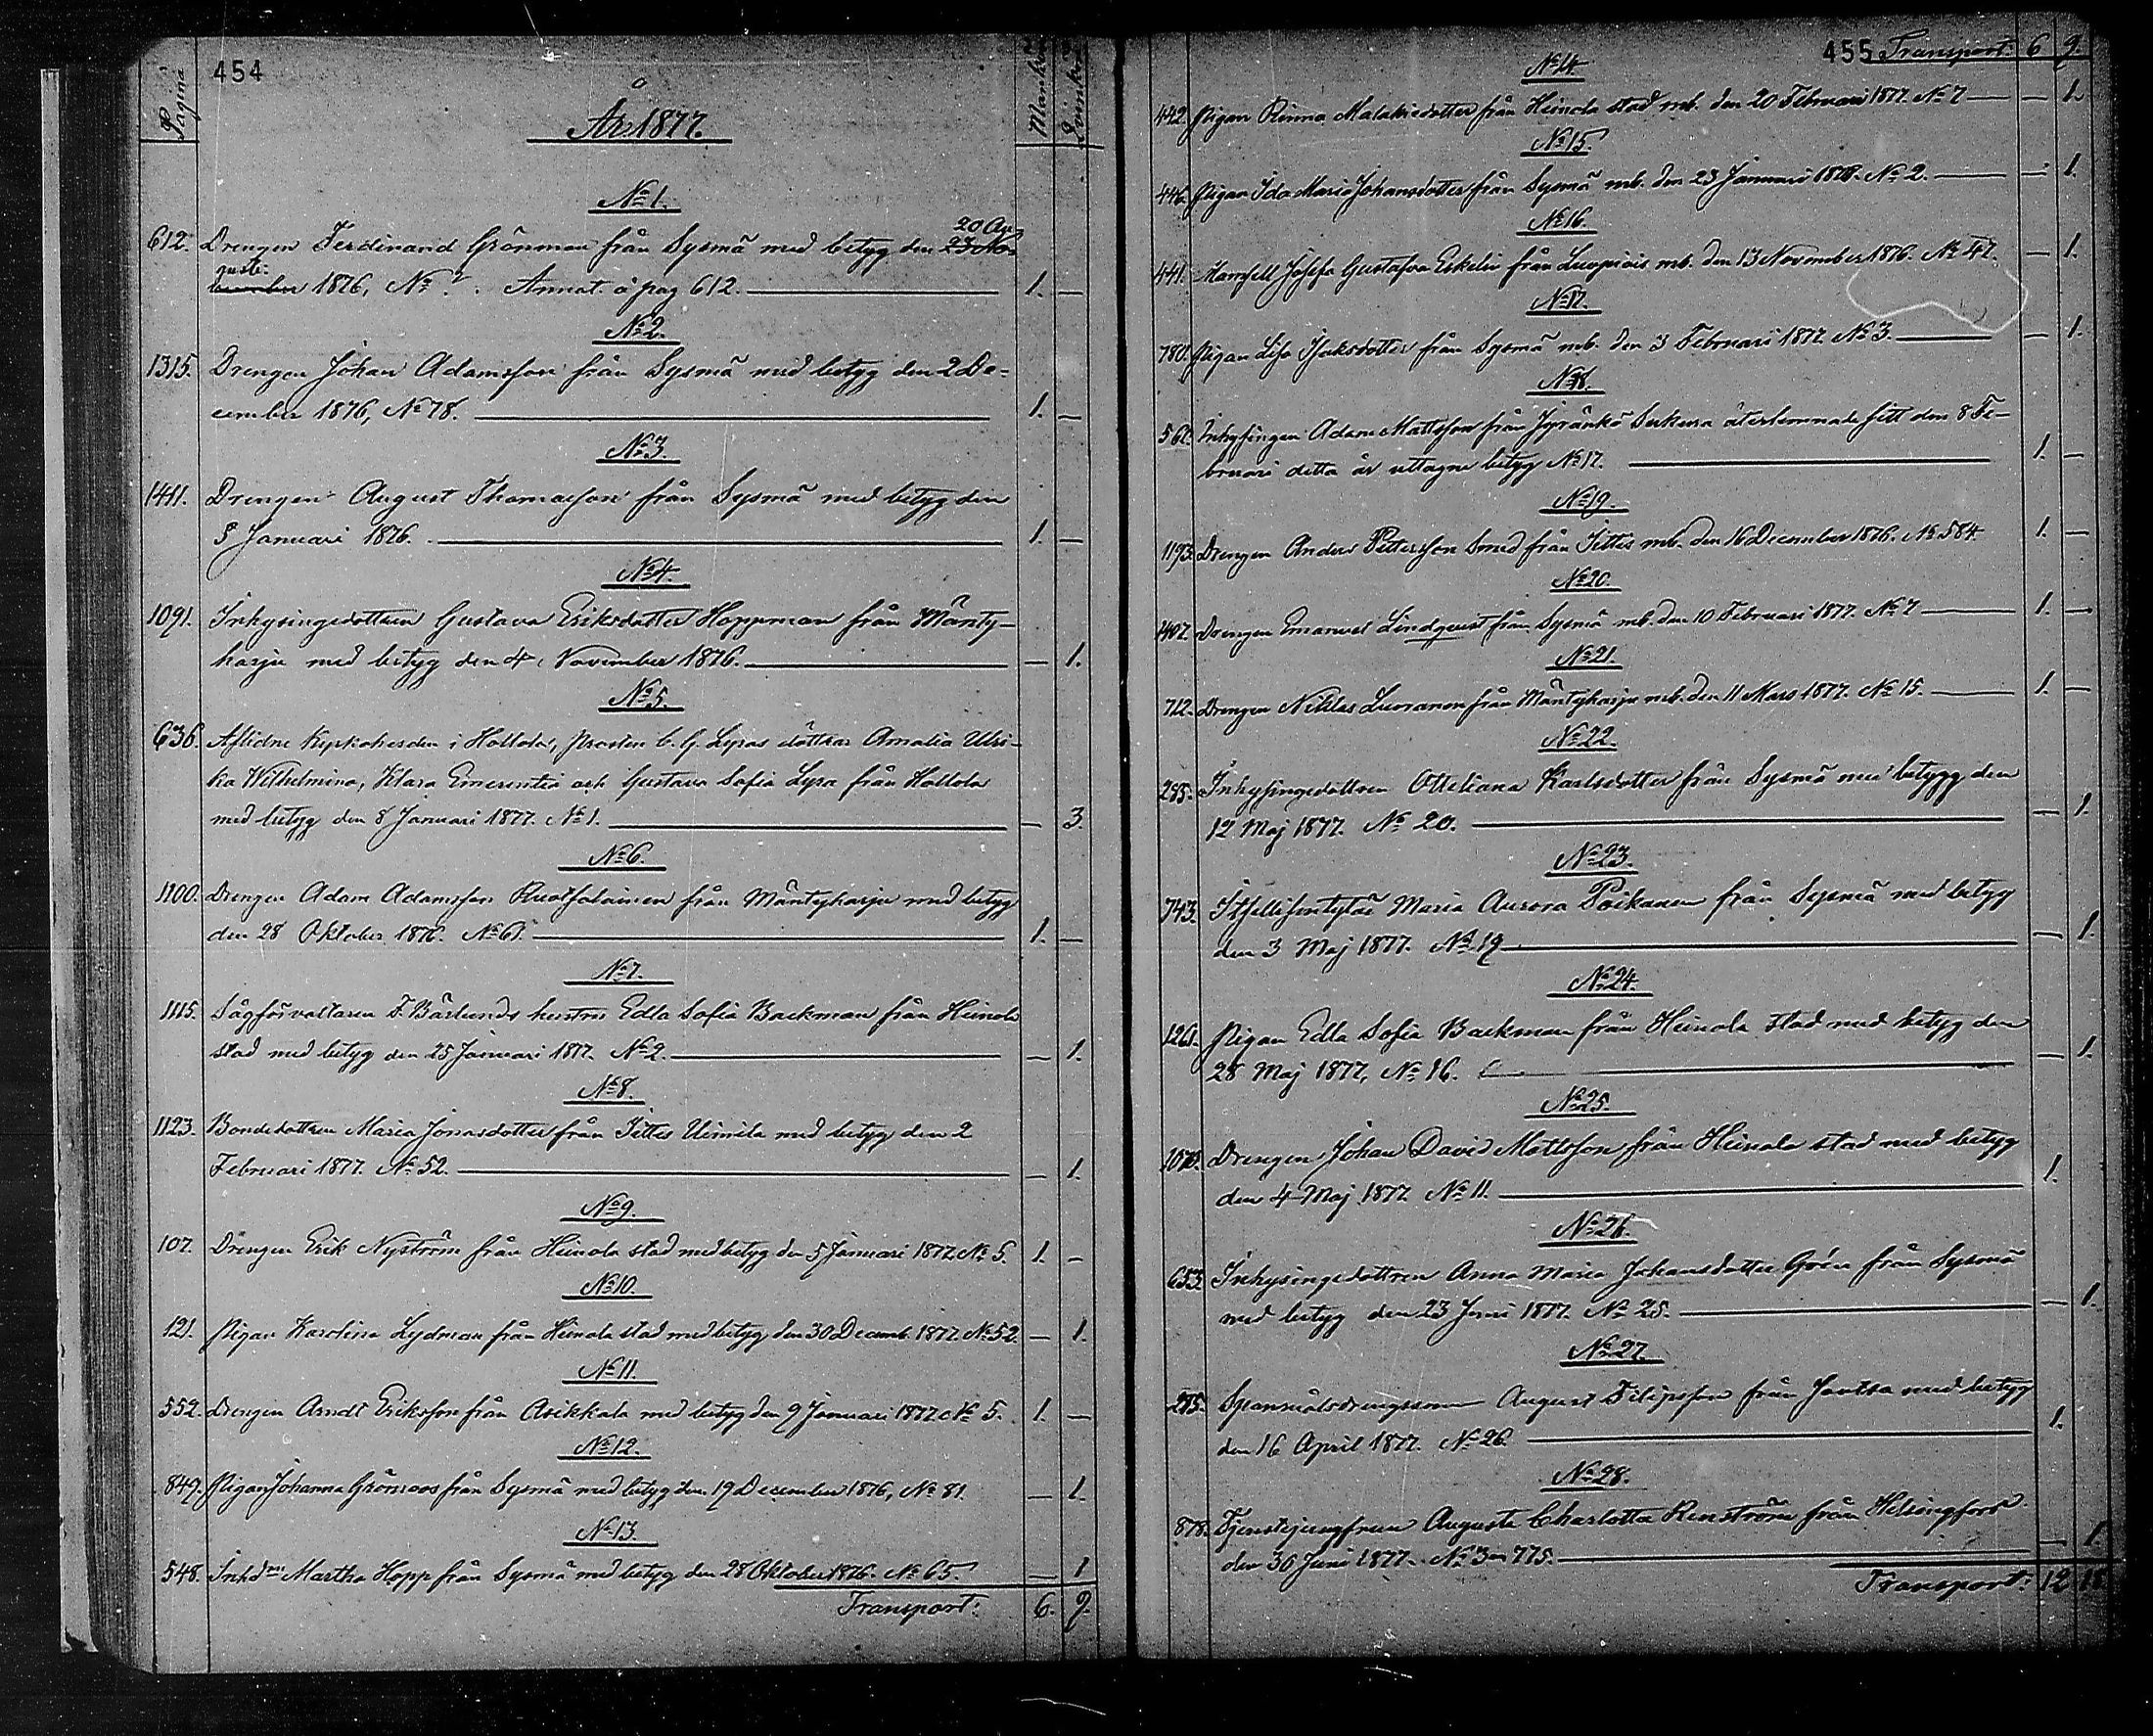 454
Pagina
Mankön
Qvinkön
År 1877.
No 1.
20 Au-
612. Drengen Ferdinand Grönman från Sysmä med betyg den 23 No-
gusti
vember 1876, No ?. Annot. å pag 612. 1. —
No 2.
1315. Drengen Johan Adamsson från Sysmä med betyg den 2 De-
cember 1876, No 78. 1. —
No 3.
1411. Drengen August Thomasson från Sysmä med betyg den
5 Januari 1876. 1. —
No 4.
1091. Inhysingedottren Gustava Eriksdotter Hoppman från Mänty-
harju med betyg den 4 November 1876. — 1.
No 5.
636. Aflidne Kyrkoherden i Hollola, Prosten C. G. Lyras döttrar Amalia Ulri-
ka Wilhelmina, Klara Emerentia och Gustava Sofia Lyra från Hollola
med betyg den 8 Januari 1877. No 1. — 3.
No 6.
1100. Drengen Adam Adamsson Ruotsalainen från Mäntyharju med betyg
den 28 Oktober 1876. No 61. 1. —
No 7.
1115. Sågförvaltaren F. Bärlunds hustru Edla Sofia Backman från Heinola
stad med betyg den 25 Januari 1877. No 2. — 1.
No 8.
1123. Bondedottren Maria Jonasdotter från Jittis Uimila med betyg den 2
Februari 1877. No 52. — 1.
No 9.
107. Drengen Erik Nyström från Heinola stad med betyg den 5 Januari 1877. No 5. 1. —
No 10.
121. Pigan Karolina Lydman från Heinola stad med betyg den 30 Decemb. 1877. No 52. — 1.
No 11.
552. Drengen Arndt Eriksson från Asikkala med betyg den 9 Januari 1877. No 5. 1. —
No 12.
849. Pigan Johanna Grönroos från Sysmä med betyg den 19 December 1876, No 81. — 1.
No 13.
548. Inhd Martha Hopp från Sysmä med betyg den 28 Oktober 1876. No 65. — 1
Transport: 6. 9.
455 Transport: 6 9.
No 14.
442. Pigan Rinna Malakiedotter från Heinola stad mb. den 20 Februari 1877. No 7 — 1.
No 15.
446. Pigan Ida Maria Johansdotter från Sysmä mb. den 23 Januari 1877. No 2. — 1.
No 16.
441. Mamsell Josefa Gustafva Eskelin från Luopiois mb. den 13 November 1876. No 47. — 1.
No 17.
780. Pigan Lisa Isaksdotter från Sysmä mb. den 3 Februari 1877. No 3. — 1.
No 18.
561. Inhysingen Adam Mattsson från Jyränkö Seikura återlemnade sitt den 8 Fe-
bruari detta år uttagne betyg No 17. 1. —
No 19.
1193. Drengen Anders Pettersson Smed från Jittis mb. den 16 December 1876. No 584. 1. —
No 20.
1407. Drengen Emanuel Lindqvist från Sysmä mb. den 10 Februari 1877. No 7 1. —
No 21.
712. Drengen Niklas Luoranen från Mäntyharju mb. den 11 Mars 1877. No 15. 1. —
No 22.
285. Inhysingedottren Otteliana Karlsdotter från Sysmä med betygg den
12 Maj 1877. No 20. — 1.
No 23.
743. Itsellisentytär Maria Aurora Poikanen från Sysmä med betyg
den 3 Maj 1877. No 19 — 1.
No 24.
1261. Pigan Edla Sofia Backman från Heinola stad med betyg den
28 Maj 1877, No 16. — 1.
No 25.
1078. Drengen Johan David Mattsson från Heinola stad med betyg
den 4 Maj 1877 No 11. 1.
No 26.
653. Inhysingedottren Anna Maria Johansdotter Grön från Sysmä
med betyg den 23 Juni 1877. No 25. — 1.
No 27.
275. Spanmålsdrengssonen August Filipsson från Jantsa med betyg
den 16 April 1877. No 26. 1.
No 28.
878. Tjenstejungfrun Augusta Charlotta Renström från Helsingfors
den 30 Juni 1877. No 3 775. — 1.
Transport: 12 18